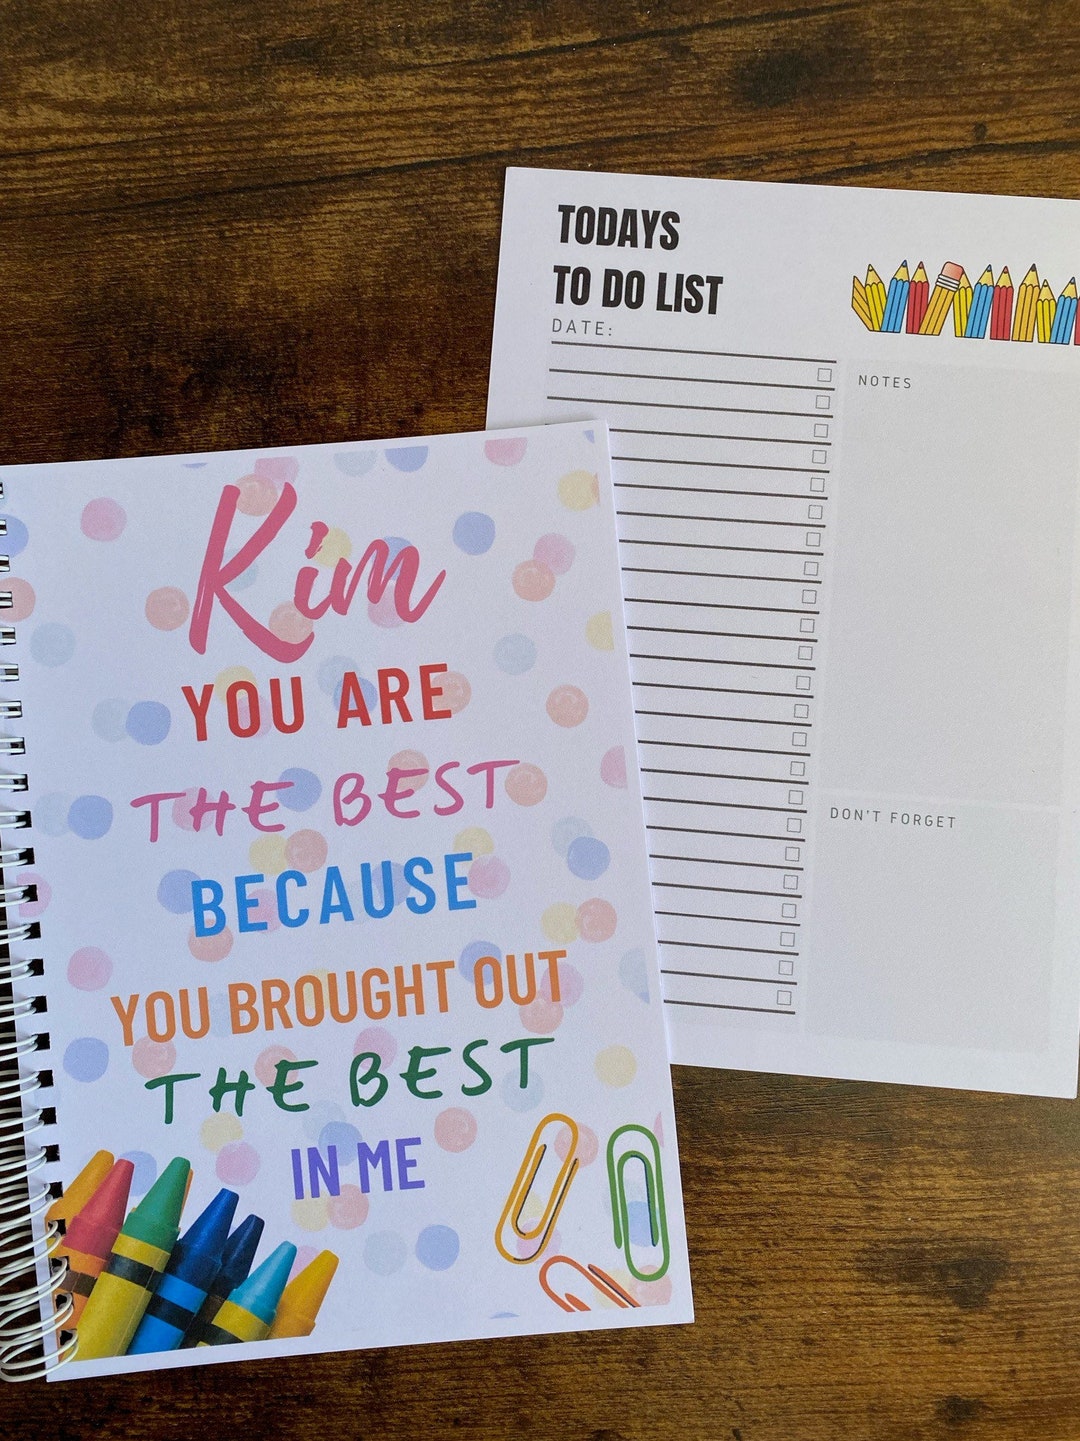 Kim
YOU ARE
THE BEST
BECAUSE
YOU BROUGHT OUT
THE BEST
IN ME
TODAYS
TO DO LIST
DATE:
NOTES
DON'T FORGET